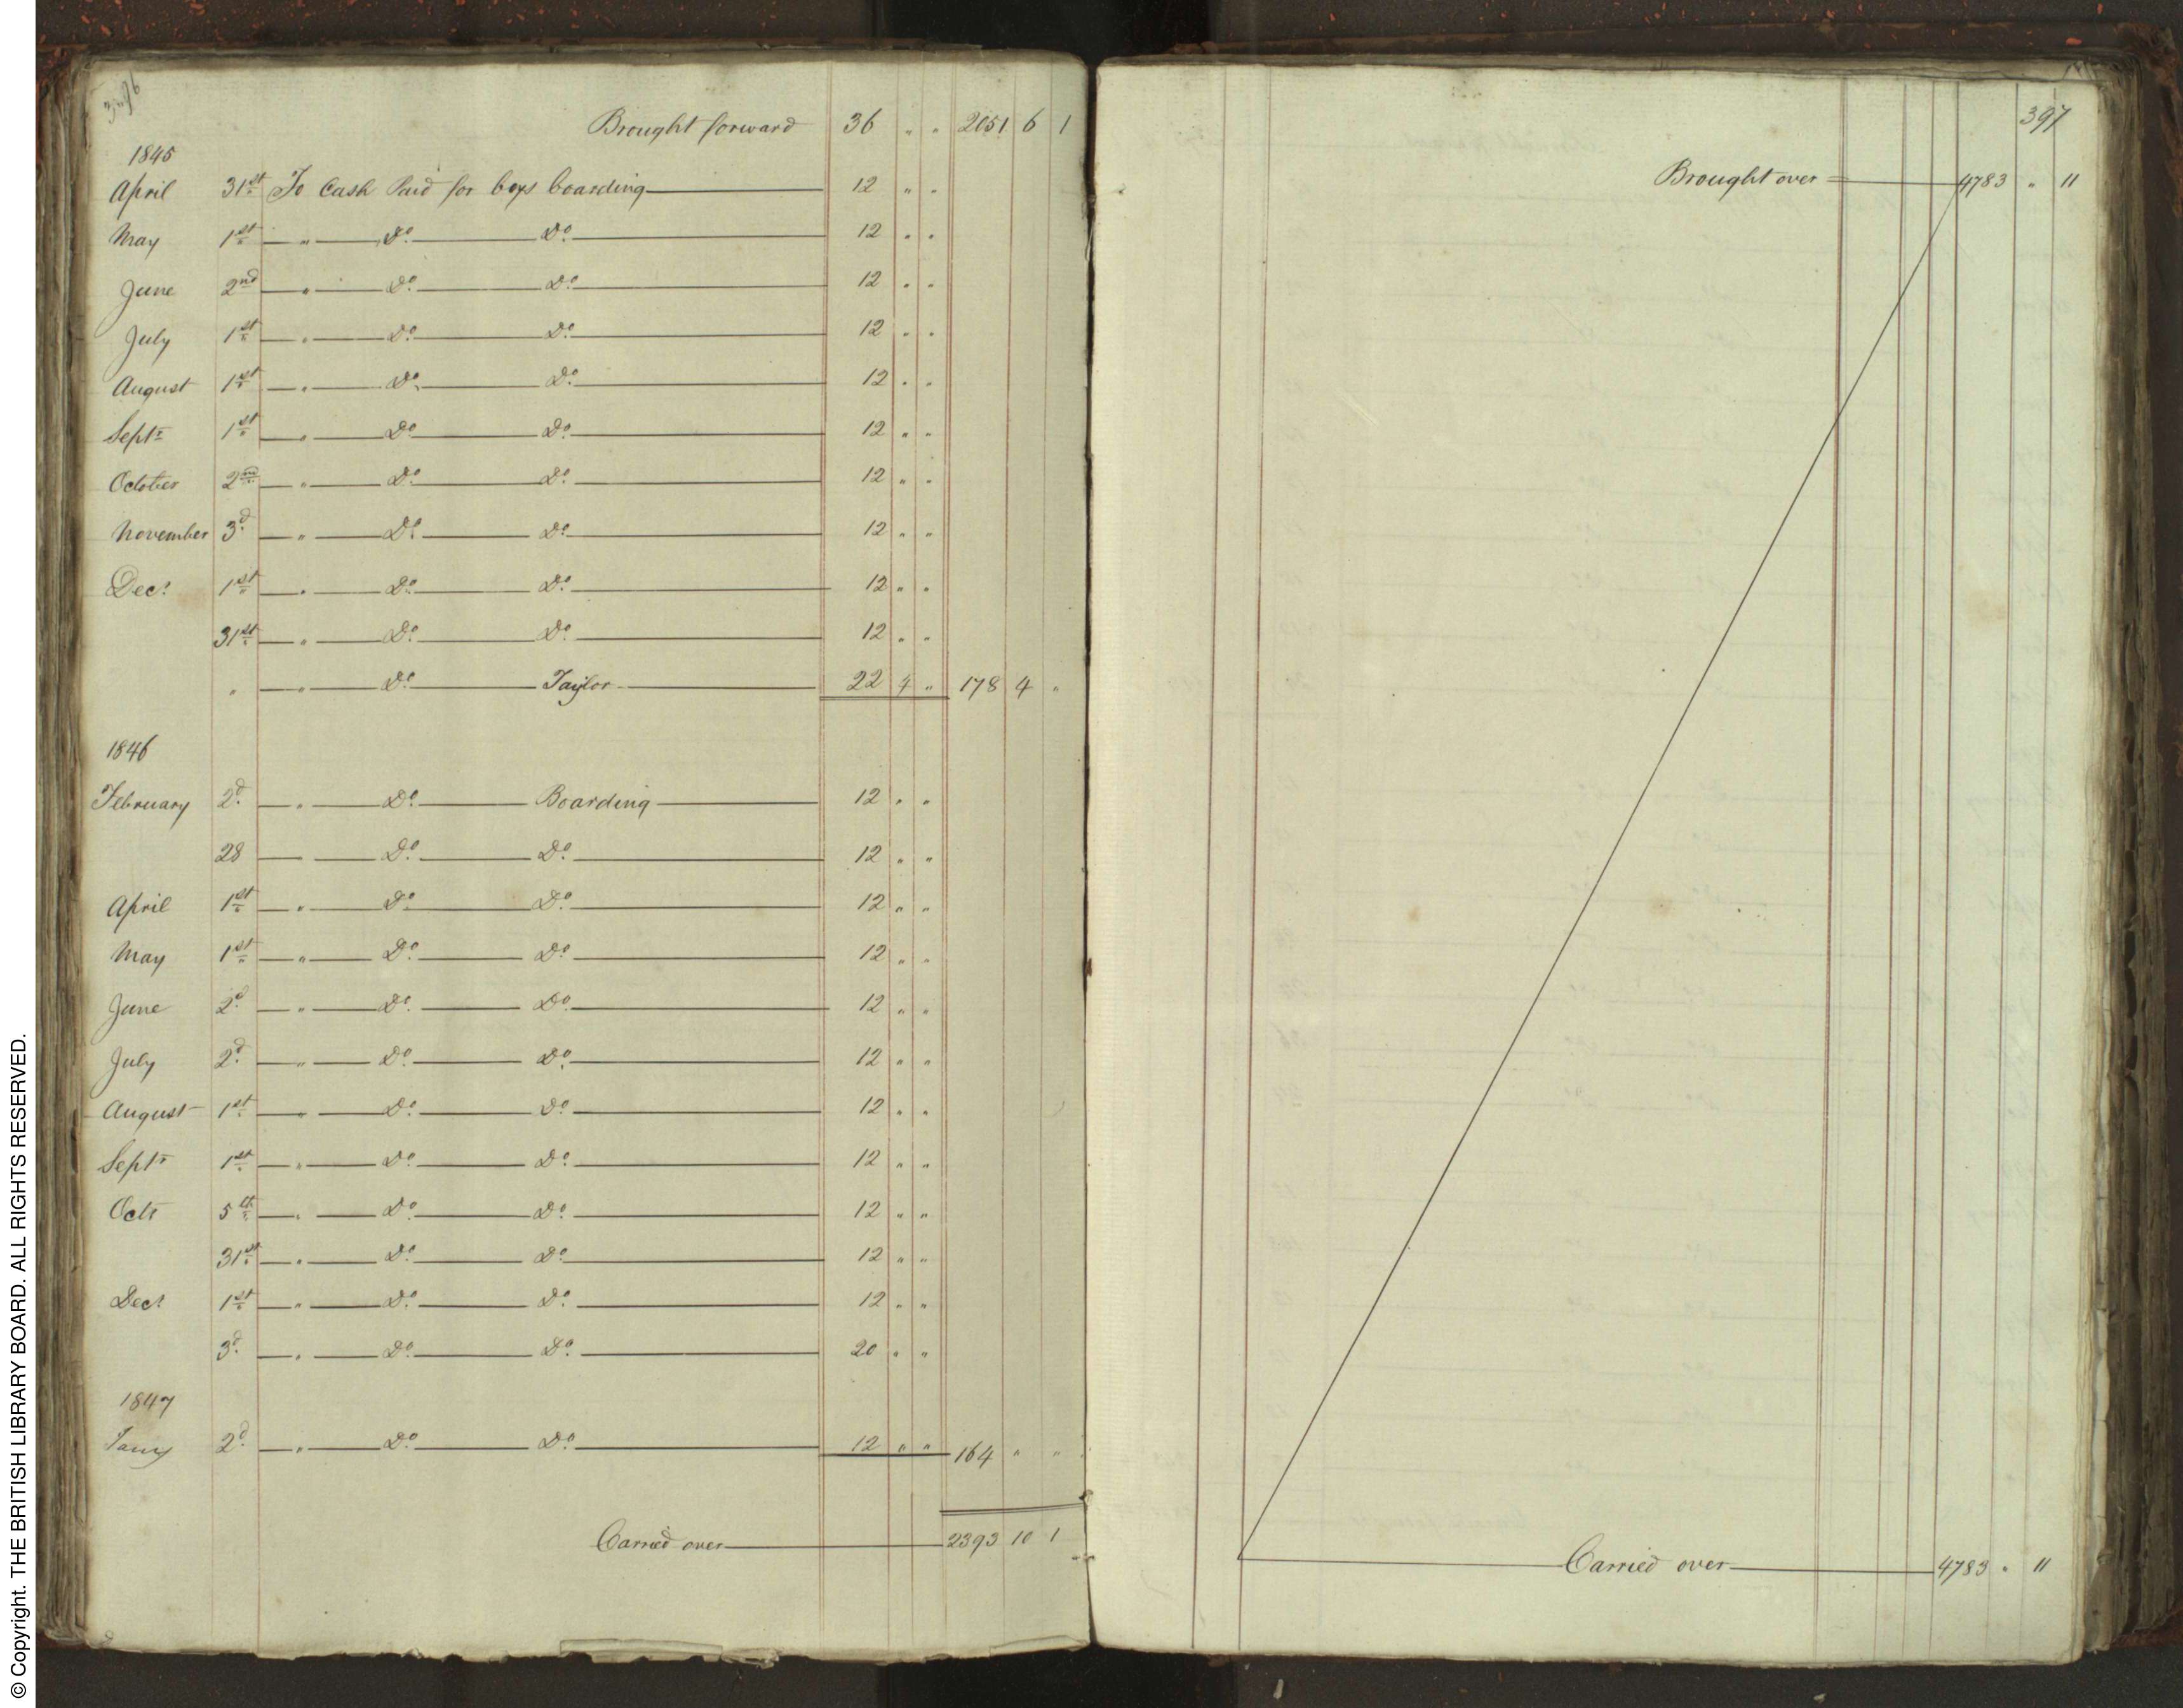 396
Brought forward 36 " " 2051 6 1
1845
April 31st To Cash Paid for boys boarding 12 " "
May 1st " Do Do 12 " "
June 2nd " Do Do 12 " "
July 1st " Do Do 12 " "
August 1st " Do Do 12 " "
Septr 1st " Do Do 12 " "
October 2nd " Do Do 12 " "
November 3d " Do Do 12 " "
Decr 1st " Do Do 12 " "
31st " Do Do 12 " "
" " Do Taylor 22 4 " 178 4 "
1846
February 2d " Do Boarding 12 " "
28 " Do Do 12 " "
April 1st " Do Do 12 " "
May 1st " Do Do 12 " "
June 2d " Do Do 12 " "
July 2d " Do Do 12 " "
August 1st " Do Do 12 " "
Septr 1st " Do Do 12 " "
Octr 5th " Do Do 12 " "
31st " Do Do 12 " "
Decr 1st " Do Do 12 " "
3d " Do Do 20 " "
1847
Jany 2d " Do Do 12 " " 164 " "
Carried over 2393 10 1
397
Brought over 4783 " 11
Carried over 4783 " 11
© Copyright. THE BRITISH LIBRARY BOARD. ALL RIGHTS RESERVED.